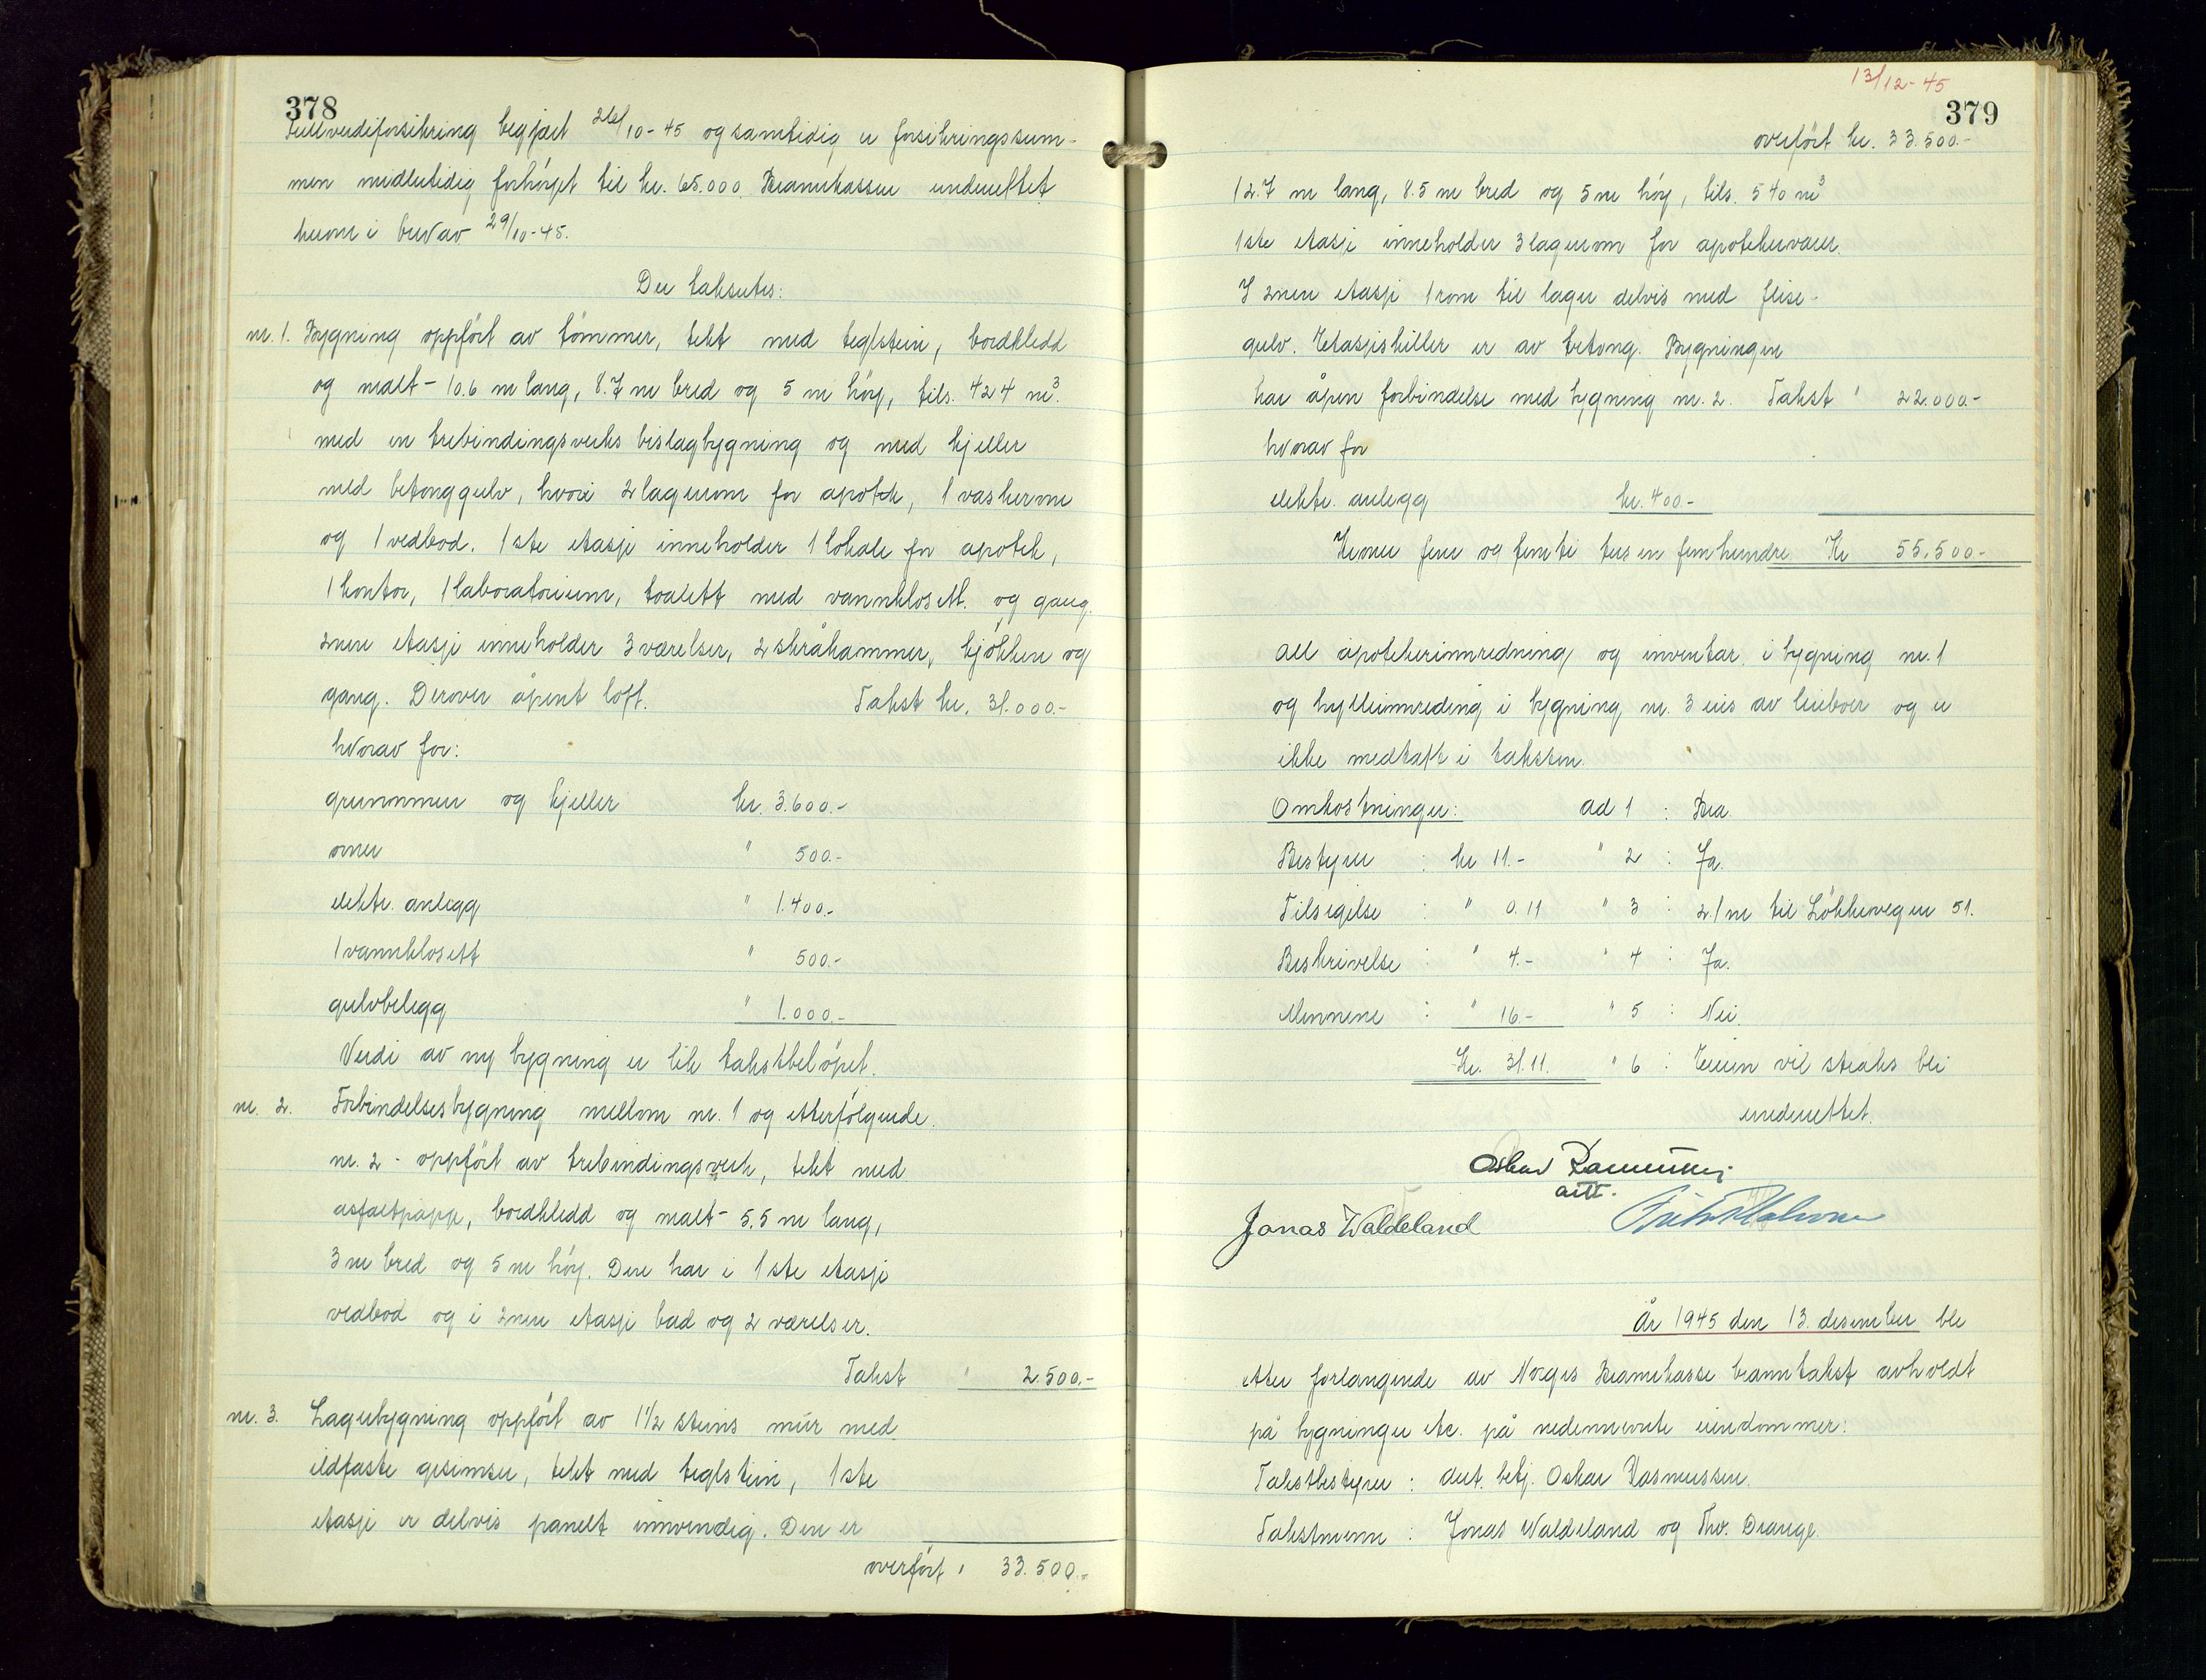 378
Fullverdiforsikring begjært 26/10-45 og samtidig er forsikringssum-
men midlertidig forhöyet til kr. 65.000. Brannkassen underrettet
herom i brev av 29/10-45.
Der takseres:
nr. 1. Bygning oppfört av tömmer, tekt med teglstein, bordkledd
og malt - 10.6 m lang, 8.7 m bred og 5 m höy, tils. 424 m³.
med en trebindingsverks bislagbygning og med kjeller
med betonggulv, hvori 2 lagerrom for apotek, 1 vaskerom
og 1 vedbod. 1ste etasje inneholder 1 lokale for apotek,
1 kontor, 1 laboratorium, toalett med vannklosett og gang.
2nen etasje inneholder 3 værelser, 2 skråkammer, kjökken og
gang. Derover åpent loft. Takst kr. 31.000.-
hvorav for:
grunnmur og kjeller kr. 3.600.-
ovner " 500.-
elektr. anlegg " 1.400.-
1 vannklosett " 500.-
gulvbelegg " 1.000.-
Verdi av ny bygning er lik takstbelöpet.
nr. 2. Forbindelsesbygning mellom nr. 1 og etterfölgende
nr. 2 - oppfört av trebindingsverk, tekt med
asfaltpapp, bordkledd og malt - 5.5 m lang,
3 m bred og 5 m höy. Den har i 1ste etasje
vedbod og i 2nen etasje bad og 2 værelser.
Takst " 2.500.-
nr. 3. Lagerbygning oppfört av 1 1/2 steins mur med
ildfaste gesimser, tekt med teglstein, 1ste
etasje er delvis panelt innvendig. Den er
overfört " 33.500.-
13/12-45
379
overfört kr. 33.500.-
12.7 m lang, 8.5 m bred og 5 m höy, tils. 540 m³
1ste etasje inneholder 3 lagerrom for apotekervarer.
I 2nen etasje 1 rom til lager delvis med flise-
gulv. Etasjeskiller er av betong. Bygningen
har åpen forbindelse med bygning nr. 2. Takst " 22.000.-
hvorav for
elektr. anlegg kr. 400.-
Kroner fem og femti tusen femhundre Kr 55.500.-
All apotekerinnredning og inventar i bygning nr. 1
og hylleinnreding i bygning nr. 3 eies av leieboer og er
ikke medtatt i taksten.
Omkostninger: ad 1 : Bra.
Bestyrer : kr 11.- " 2 : Ja.
Tilsigelse : " 0.11 " 3 : 2.1 m til Lökkevegen 51.
Beskrivelse : " 4.- " 4 : Ja.
Mennene : " 16.- " 5 : Nei.
Kr. 31.11. " 6 : Eieren vil straks bli
underrettet.
Oskar Rasmussen
aut.
Jonas Waldeland
År 1945 den 13. desember ble
etter forlangende av Norges Brannkasse branntakst avholdt
på bygninger etc. på nedennevnte eiendommer:
Takstbestyrer : aut. betj. Oskar Rasmussen.
Takstmenn : Jonas Waldeland og Thv. Drange.